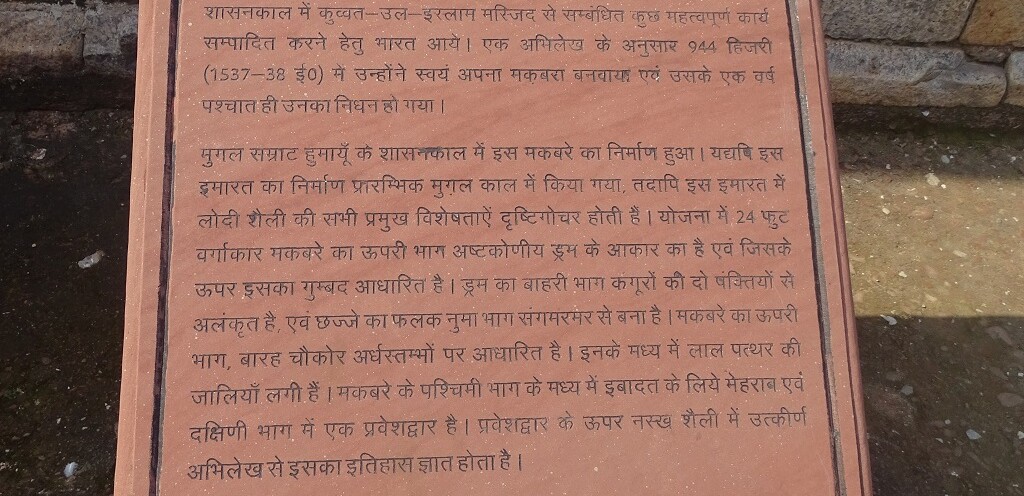 शासनकाल में कुव्वत–उल–इस्लाम मस्जिद से सम्बंधित कुछ महत्वपूर्ण कार्य
सम्पादित करने हेतु भारत आये। एक अभिलेख के अनुसार 944 हिजरी
(1537–38 ई0) में उन्होंने स्वयं अपना मकबरा बनवाया एवं उसके एक वर्ष
पश्चात ही उनका निधन हो गया।
मुगल सम्राट हुमायूँ के शासनकाल में इस मकबरे का निर्माण हुआ। यद्यपि इस
इमारत का निर्माण प्रारम्भिक मुग़ल काल में किया गया, तदापि इस इमारत में
लोदी शैली की सभी प्रमुख विशेषताऐं दृष्टिगोचर होती हैं। योजना में 24 फुट
वर्गाकार मकबरे का ऊपरी भाग अष्टकोणीय ड्रम के आकार का है एवं जिसके
ऊपर इसका गुम्बद आधारित है। ड्रम का बाहरी भाग कगूरों की दो पंक्तियों से
अलंकृत है, एवं छज्जे का फलक नुमा भाग संगमरमर से बना है। मकबरे का ऊपरी
भाग, बारह चौकोर अर्धस्तम्भों पर आधारित है। इनके मध्य में लाल पत्थर की
जालियाँ लगी हैं। मकबरे के पश्चिमी भाग के मध्य में इबादत के लिये मेहराब एवं
दक्षिणी भाग में एक प्रवेशद्वार है। प्रवेशद्वार के ऊपर नस्ख शैली में उत्कीर्ण
अभिलेख से इसका इतिहास ज्ञात होता है।